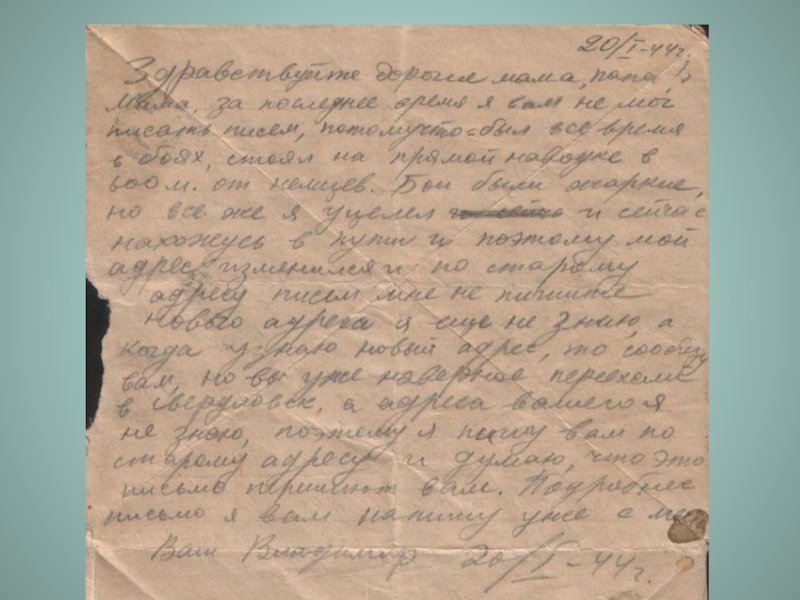 20/I-44г.
Здравствуйте дорогие мама, папа!
Мама, за последнее время я вам не мог
писать писем, потому что был все время
в боях, стоял на прямой наводке в
600 м. от немцев. Бои были жаркие,
но все же я уцелел и сейчас
нахожусь в пути и поэтому мой
адрес изменился и по старому
адресу писем мне не пишите
Нового адреса я еще не знаю, а
когда узнаю новый адрес, то сообщу
вам, но вы уже наверное переехали
в Свердловск, а адреса вашего я
не знаю, поэтому я пишу вам по
старому адресу и думаю, что это
письмо пришлют вам. Подробнее
письмо я вам напишу уже с
Ваш Владимир 20/I-44г.